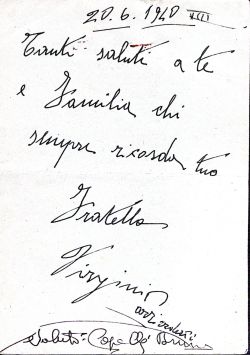 20.6.1940 XVIII
Tanti saluti a te
e Familia chi
sempre ricorda tuo
Fratello
Virginio
arrivederci
Saluto: Bruno